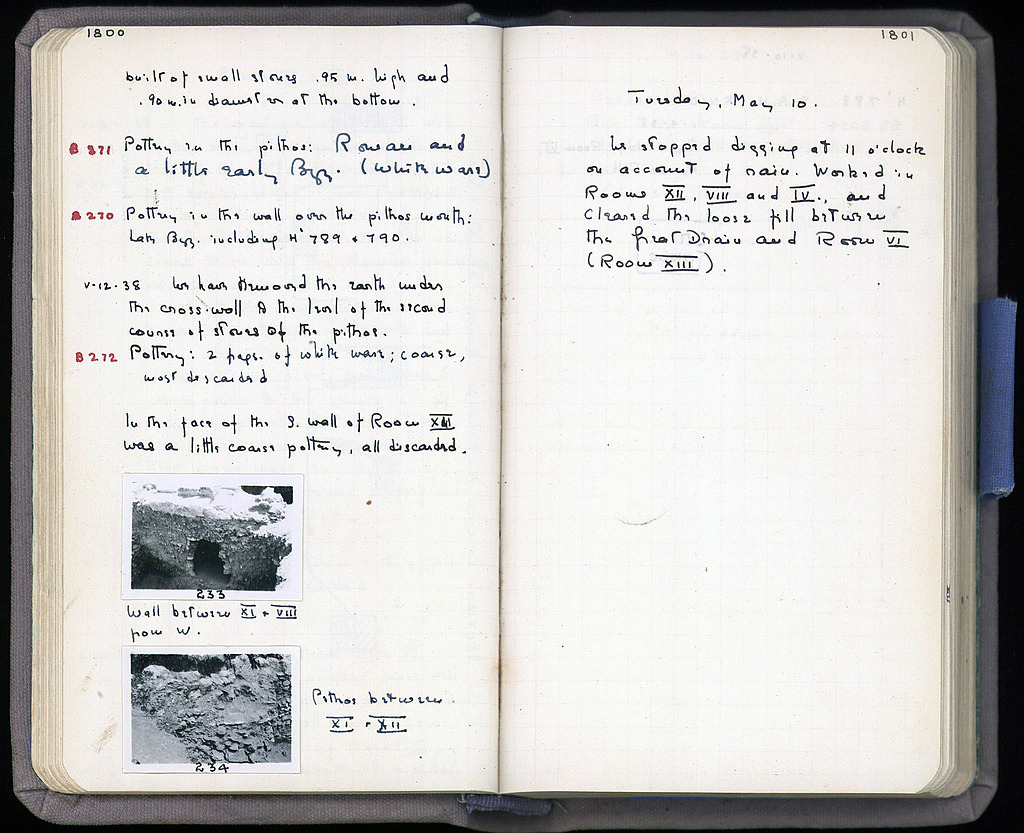 1800
built of small stones .95 m. high and
.90 m. in diameter at the bottom.
B 271 Pottery in the pithos: Roman and
a little early Byz. (white ware)
B 270 Pottery in the wall over the pithos mouth:
Late Byz. including H' 789 + 790.
V-12-38 We have removed the earth under
the cross-wall to the level of the second
course of stones of the pithos.
B 272 Pottery: 2 frags. of white ware; coarse,
most discarded
In the face of the S. wall of Room XIII
was a little coarse pottery, all discarded.
233
Wall between XI + VIII
from W.
234
Pithos between
XI + XII
1801
Tuesday, May 10.
We stopped digging at 11 o'clock
on account of rain. Worked in
Rooms XII, VIII and IV., and
cleared the loose fill between
the great Drain and Room VI
(Room XIII).